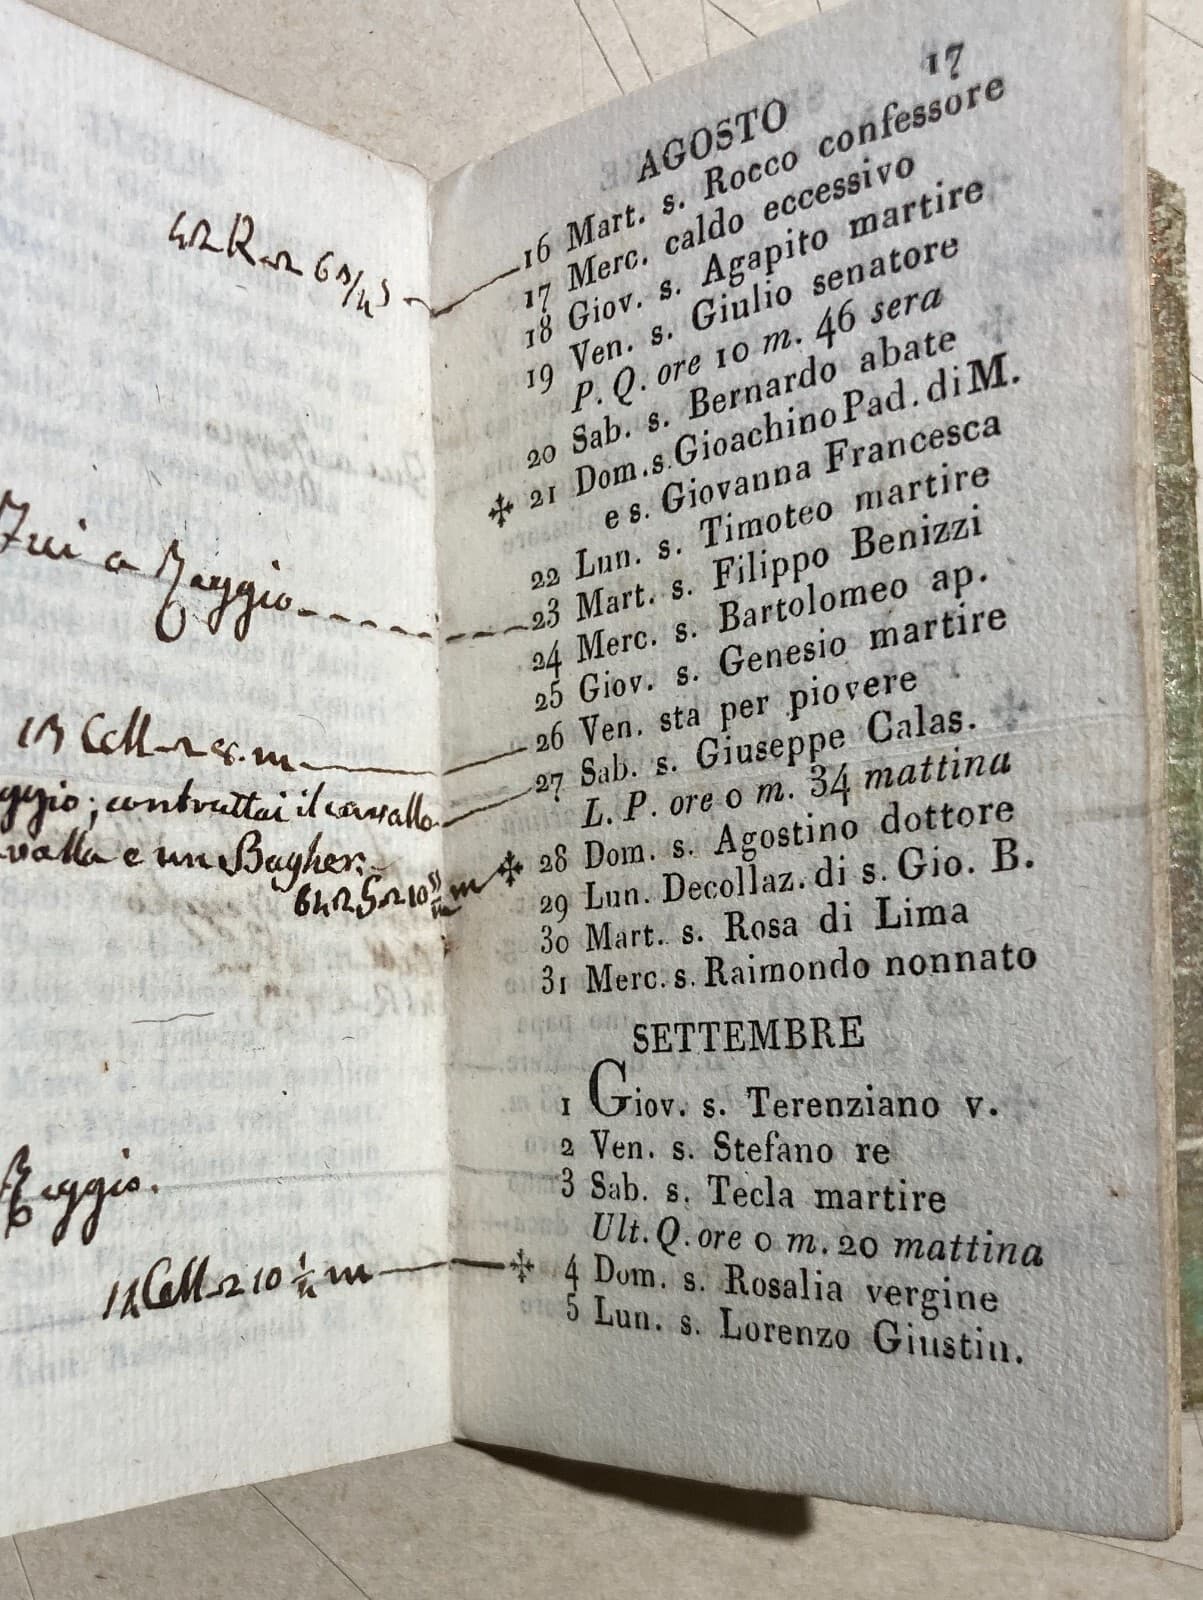 Fui a Reggio
13 Cell a 8. m
ggio; contrattai il cavallo
valla e un Bagher.
Reggio.
14 Cell a 10 1/2 m
17
AGOSTO
16 Mart. s. Rocco confessore
17 Merc. caldo eccessivo
18 Giov. s. Agapito martire
19 Ven. s. Giulio senatore
P. Q. ore 10 m. 46 sera
20 Sab. s. Bernardo abate
✠ 21 Dom. s. Gioachino Pad. di M.
e s. Giovanna Francesca
22 Lun. s. Timoteo martire
23 Mart. s. Filippo Benizzi
24 Merc. s. Bartolomeo ap.
25 Giov. s. Genesio martire
26 Ven. sta per piovere
27 Sab. s. Giuseppe Calas.
L. P. ore 0 m. 34 mattina
✠ 28 Dom. s. Agostino dottore
29 Lun. Decollaz. di s. Gio. B.
30 Mart. s. Rosa di Lima
31 Merc. s. Raimondo nonnato
SETTEMBRE
1 Giov. s. Terenziano v.
2 Ven. s. Stefano re
3 Sab. s. Tecla martire
Ult. Q. ore 0 m. 20 mattina
✠ 4 Dom. s. Rosalia vergine
5 Lun. s. Lorenzo Giustin.